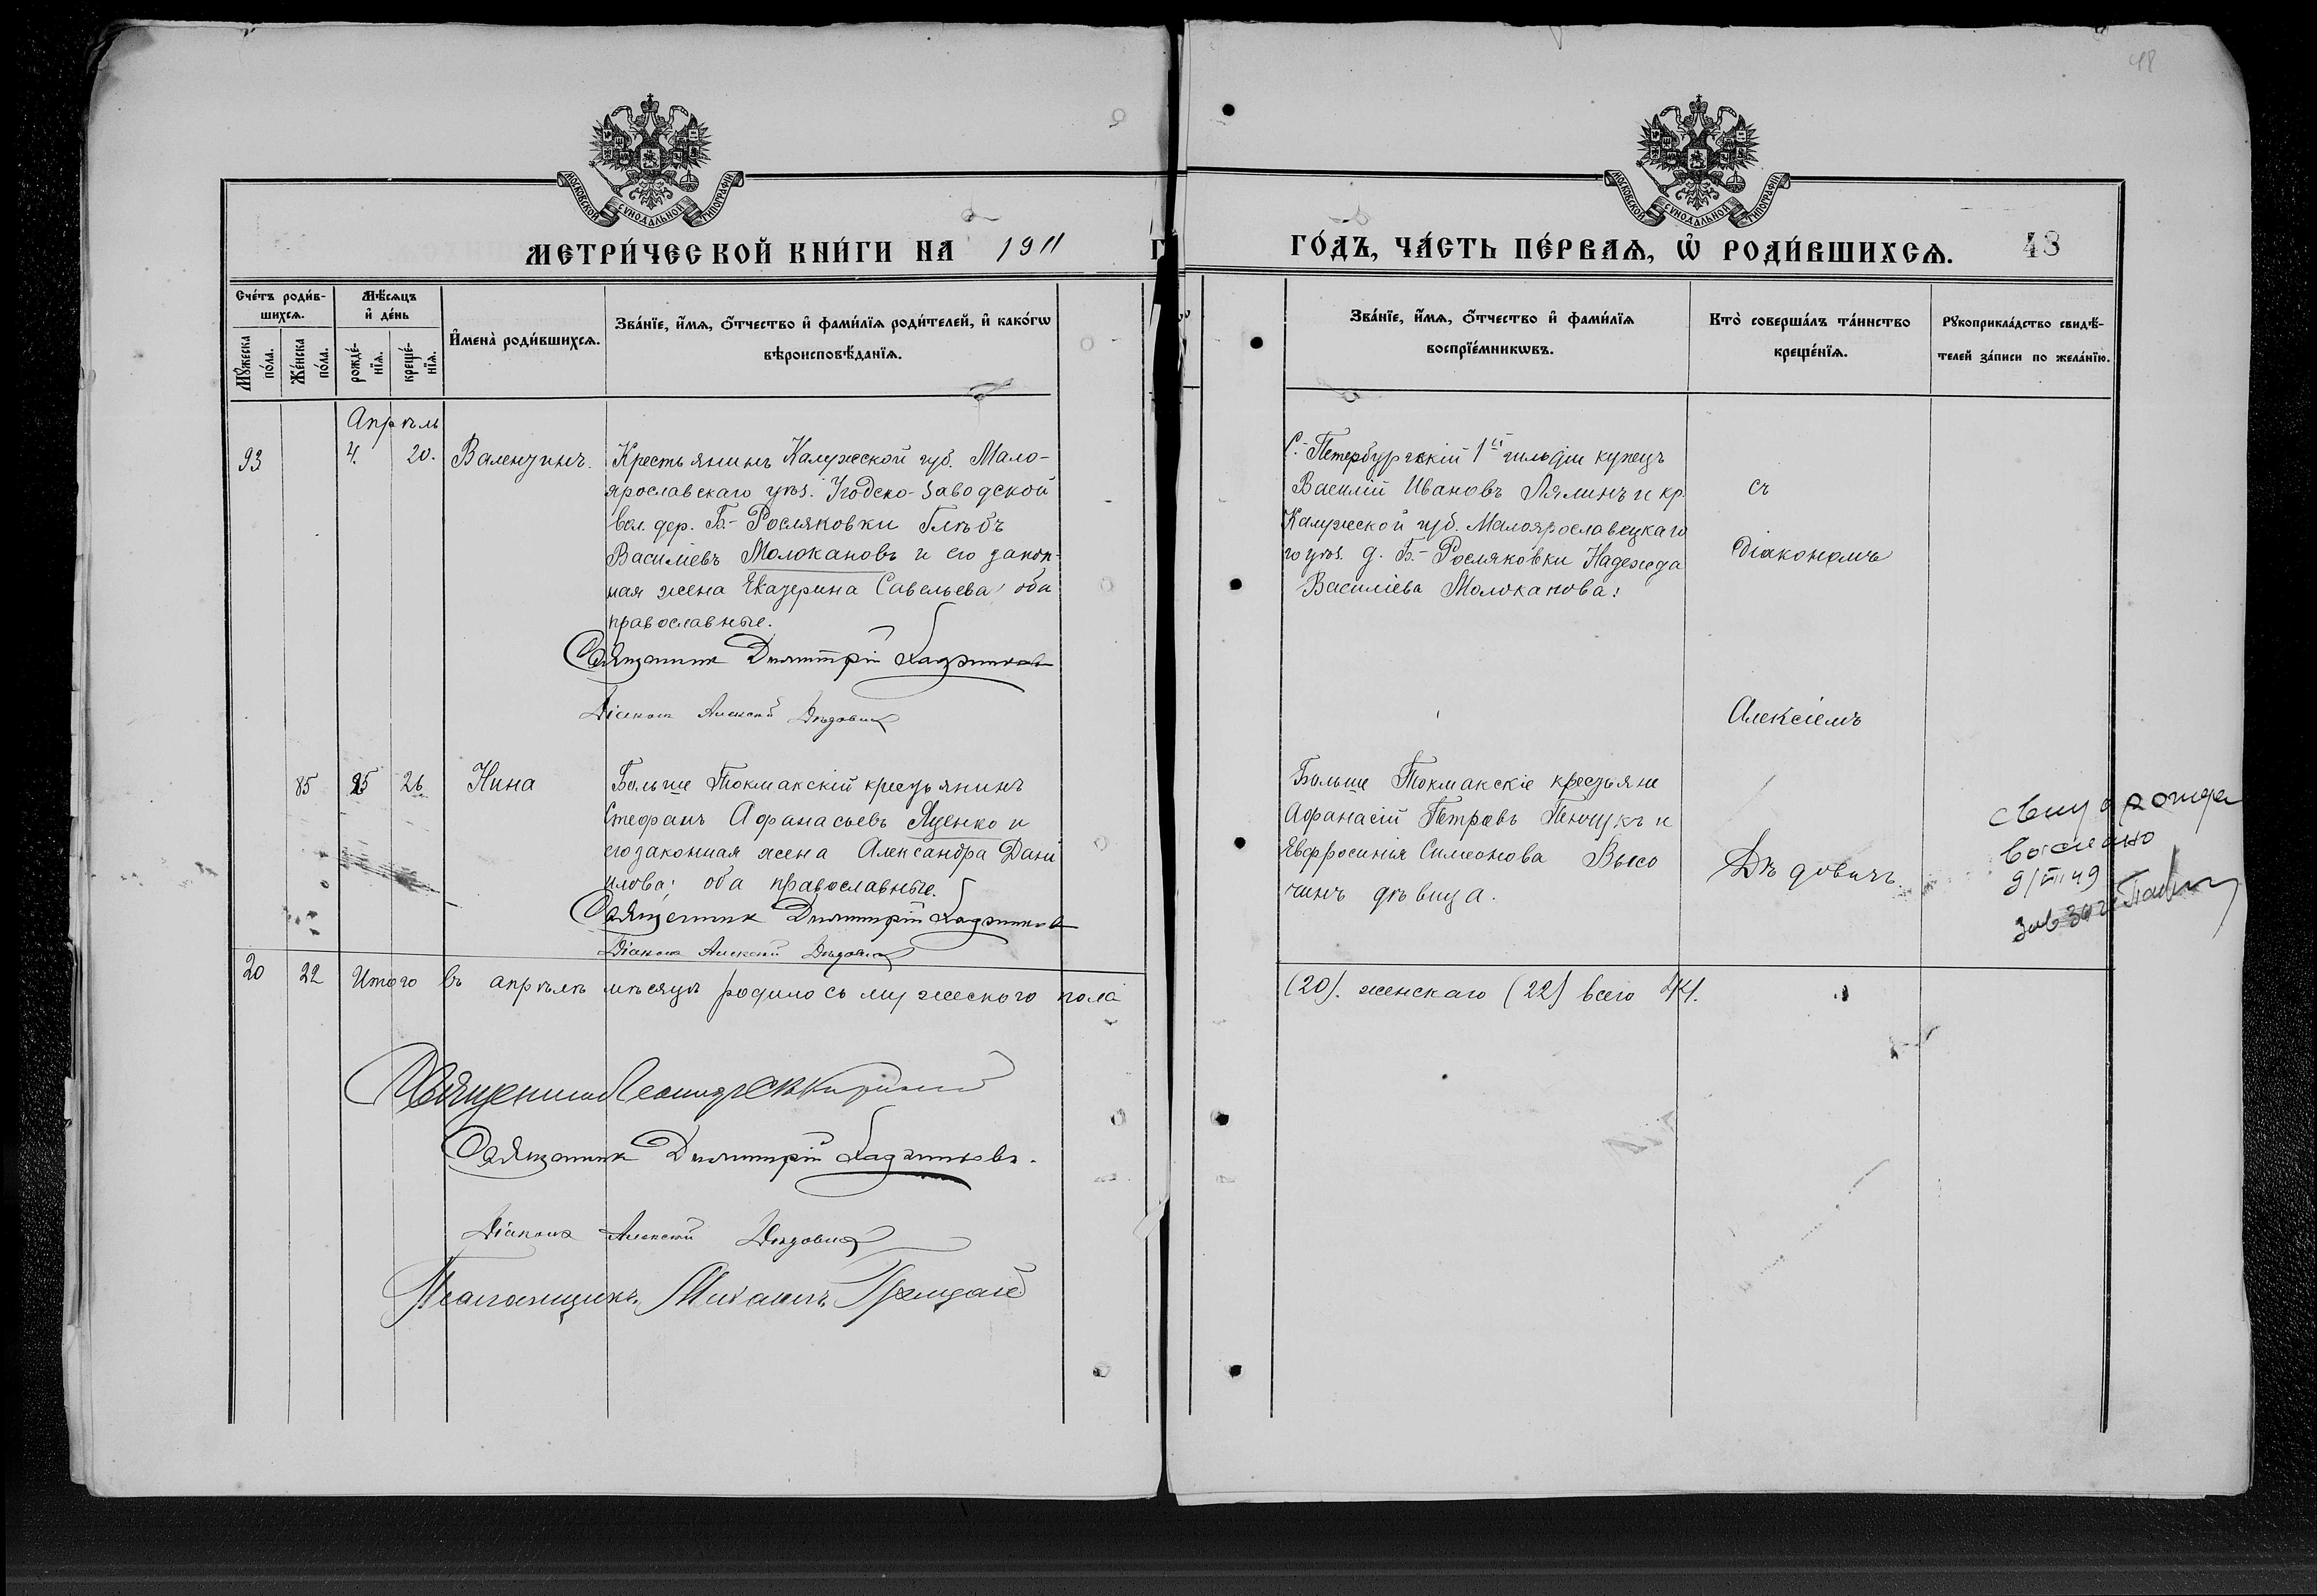 48
МОСКОВСКОЙ СѴНОДАЛЬНОЙ ТИПОГРАФІИ
МОСКОВСКОЙ СѴНОДАЛЬНОЙ ТИПОГРАФІИ
МЕТРИ́ЧЕСКОЙ КНИ́ГИ НА 1911
ГО́ДЪ, ЧА́СТЬ ПЕ́РВАѦ, Ѡ҆ РОДИ́ВШИХСѦ. 43
Сче́тъ роди́в-
шихсѧ.
Мꙋ́жеска по́ла.
Же́нска по́ла.
Мѣ́сѧцъ
и҆ де́нь
рожде́-
нїѧ.
креще́-
нїѧ.
И҆мена̀ роди́вшихсѧ.
Зва́нїе, и҆́мѧ, ѻ҆́тчество и҆ фами́лїѧ роди́телей, и҆ како́гѡ
вѣроисповѣ́данїѧ.
Зва́нїе, и҆́мѧ, ѻ҆́тчество и҆ фами́лїѧ
воспрїе́мникѡвъ.
Кто̀ соверша́лъ та́инство
креще́нїѧ.
Рꙋкоприкла́дство свидѣ́-
телей за́писи по жела́нїю.
Апрѣль
93 4. 20. Валентинъ.
Крестьянинъ Калужской губ. Мало-
ярославскаго уѣз. Угодско-Заводской
вол. дер. Б.-Росляковки Глѣбъ
Василіевъ Молокановъ и его закон-
ная жена Екатерина Савельева: оба
православные.
Священник Димитрій
Діаконъ Алексій Дѣдовичъ
С.-Петербургскій 1й гильдіи купецъ
Василій Ивановъ Лялинъ и кр.
Калужской губ. Малоярославецкаго
го уѣз. д. Б.-Росляковки Надежда
Василіева Молоканова:
съ
діакономъ
Алексіемъ
Дѣдовичъ.
85 25 26 Нина
Больше Токмакскій крестьянинъ
Стефанъ Афанасьевъ Яценко и
его законная жена Александра Дани
илова: оба православные.
Священник Димитрій
Діаконъ Алексій Дѣдовичъ
Больше Токмакскіе крестьяне
Афанасій Петровъ и
Евфросинія Симеонова Высо
чинъ дѣвица.
выслано
20 22 Итого въ апрѣлѣ мѣсяцѣ родилось мужеского пола
(20). женскаго (22) всего
Священник Леонидъ
Священник Димитрій
Діаконъ Алексій Дѣдовичъ
Псаломщикъ Михаилъ